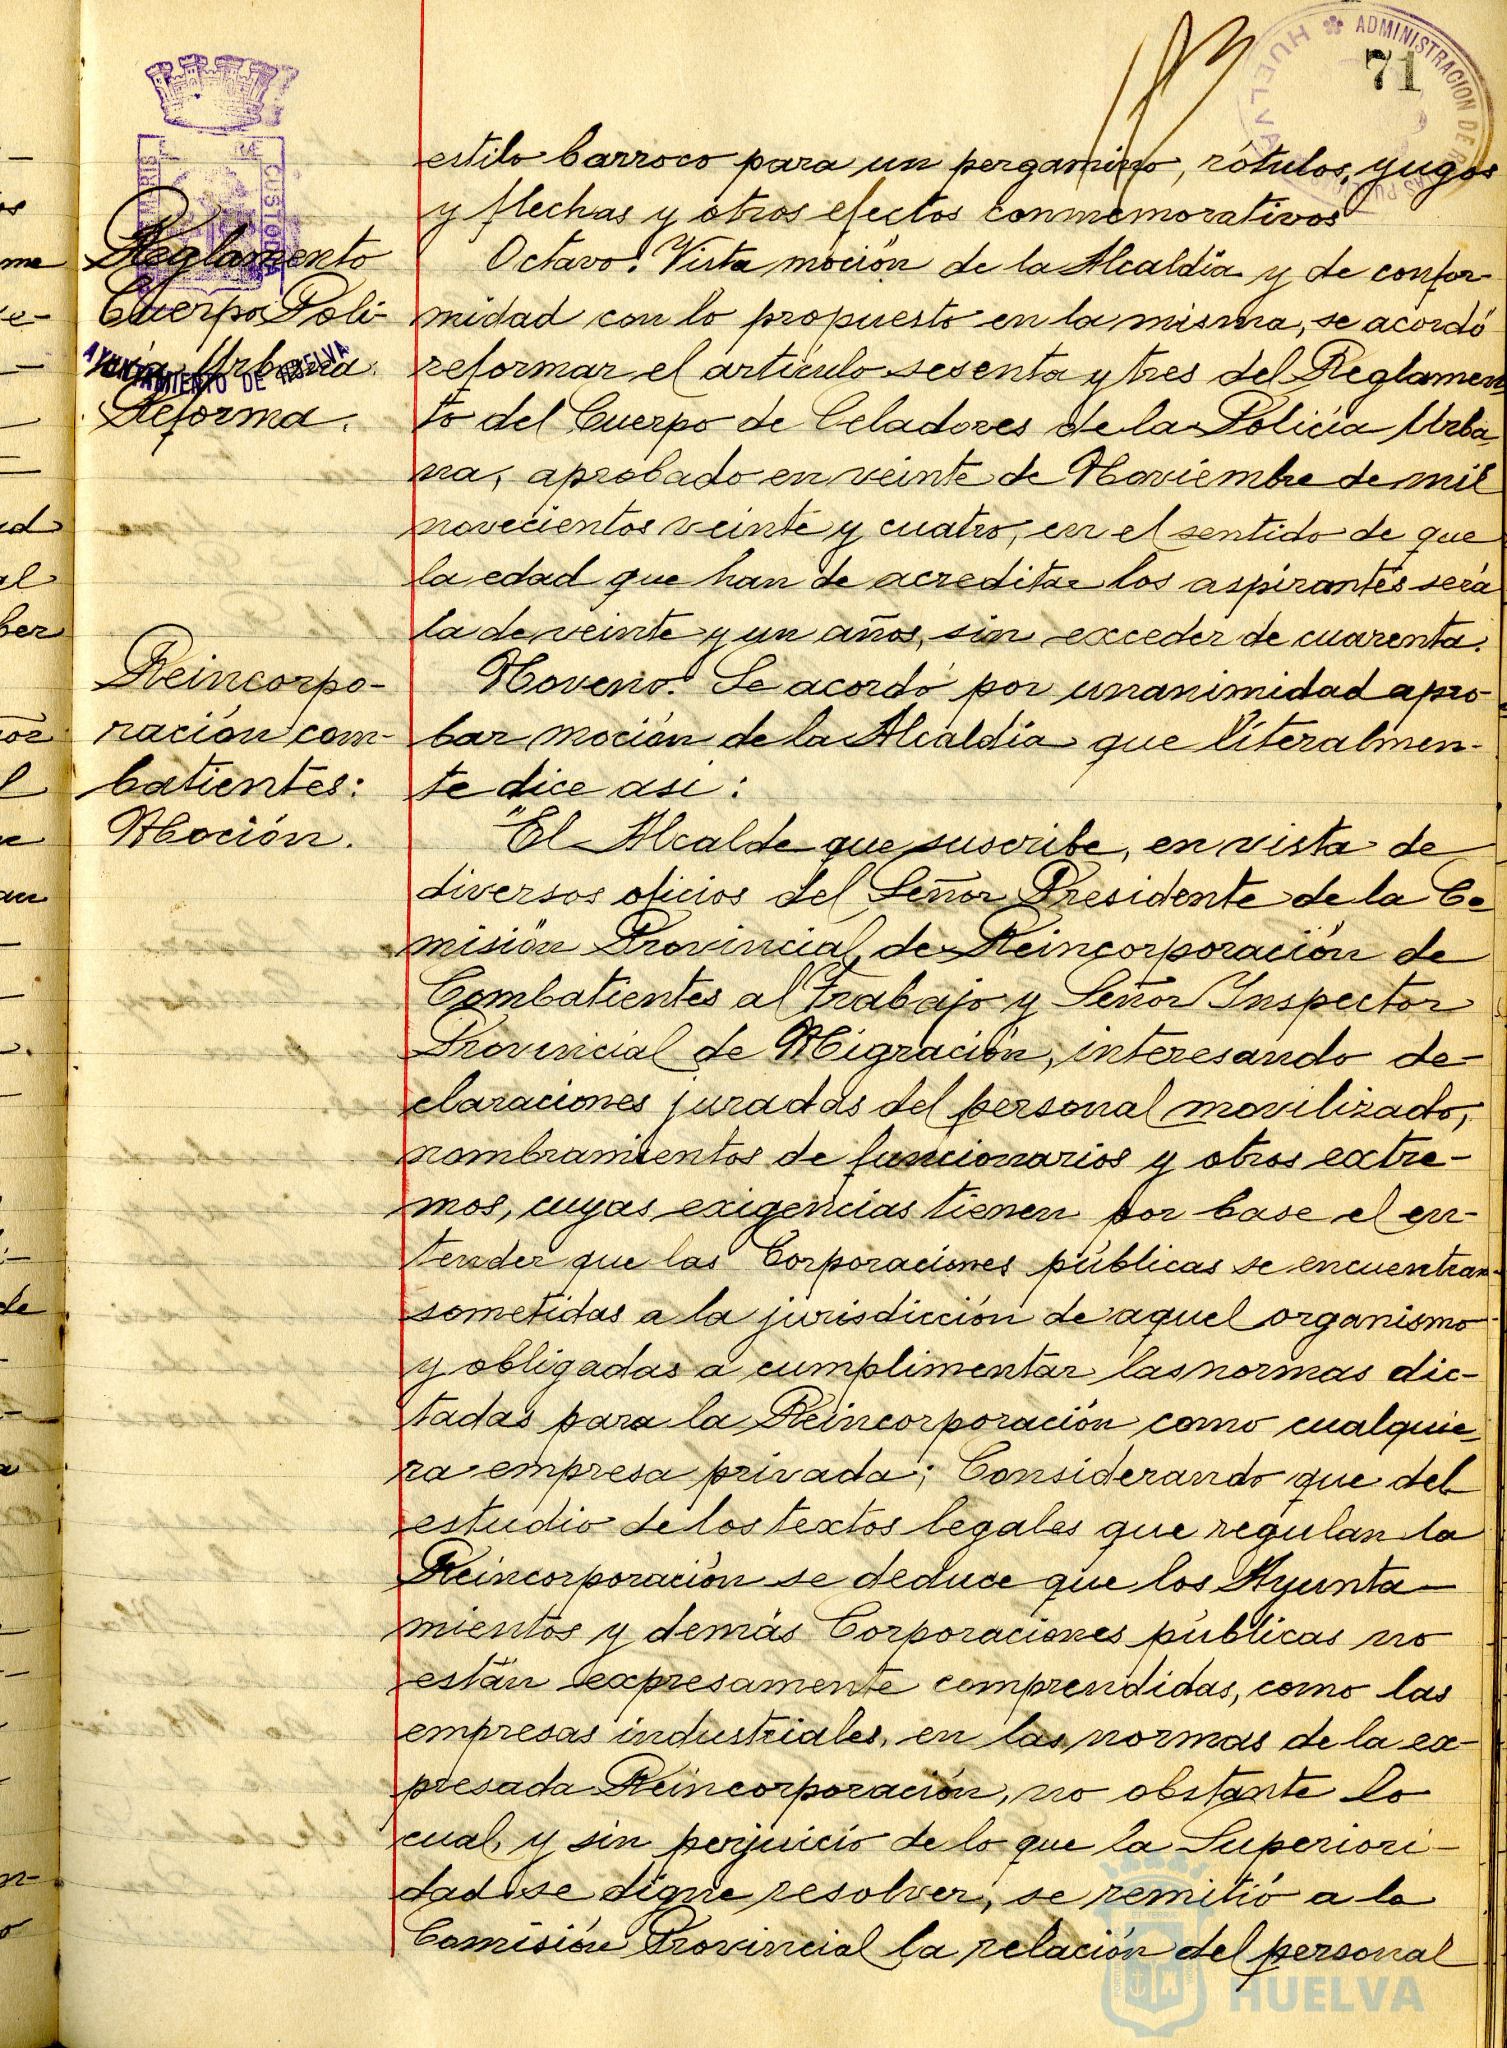 71
estilo barroco para un pergamino, rótulos, yugos
y flechas y otros efectos conmemorativos
Reglamento
Cuerpo Poli-
cía Urbana.
Reforma.
Octavo: Vista moción de la Alcaldía y de confor-
midad con lo propuesto en la misma, se acordó
reformar el artículo sesenta y tres del Reglamen
to del Cuerpo de Celadores de la Policía Urba
na, aprobado en veinte de Noviembre de mil
novecientos veinte y cuatro, en el sentido de que
la edad que han de acreditar los aspirantes será
la de veinte y un años, sin exceder de cuarenta.
Reincorpo-
ración com-
batientes:
Moción.
Noveno: Se acordó por unanimidad apro-
bar moción de la Alcaldía que literalmen-
te dice asi:
"El Alcalde que suscribe, en vista de
diversos oficios del Señor Presidente de la Co
misión Provincial de Reincorporación de
Combatientes al Trabajo y Señor Inspector
Provincial de Migración, interesando de-
claraciones juradas del personal movilizado,
nombramientos de funcionarios y otros extre-
mos, cuyas exigencias tienen por base el en-
tender que las Corporaciones públicas se encuentran
sometidas a la jurisdicción de aquel organismo
y obligadas a cumplimentar las normas dic-
tadas para la Reincorporación como cualquie-
ra empresa privada; Considerando que del
estudio de los textos legales que regulan la
Reincorporación se deduce que los Ayunta-
mientos y demás Corporaciones públicas no
están expresamente comprendidas, como las
empresas industriales, en las normas de la ex-
presada Reincorporación, no obstante lo
cual, y sin perjuicio de lo que la Superiori-
dad se digne resolver, se remitió a la
Comisión Provincial la relación del personal
AYUNTAMIENTO DE HUELVA
ADMINISTRACION DE
HUELVA
CUSTODIA
HUELVA